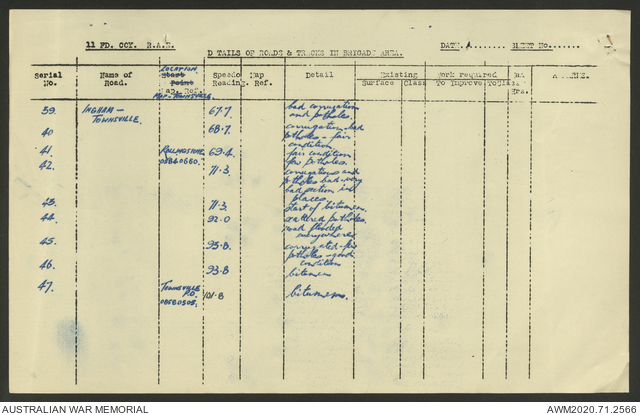 11 FD. COY. R.A.E.
D TAILS OF ROADS & TRACKS IN BRIGADE AREA.
DATE. SHEET No.
Serial No. Name of Road. LOCATION Start Point Map. Ref. MAP-TOWNSVILLE. Speedo Reading. Map Ref. Detail Existing Surface Class Work required To Improve To Class
39. INGHAM – TOWNSVILLE. 67.7. bad corrugation and potholes.
40 68.7. corrugation-bad potholes - fair condition
41. ROLLINGSTONE 69.4. fair condition few potholes.
42. 08840680. 71.3 corrugations and potholes bad-very bad section in places
43. 71.3 start of bitumen.
44. 92.0 scattered potholes. road flooded everywhere
45. 93.8. corrugated-few potholes-good condition
46. 93.8 bitumen
47. TOWNSVILLE P.O. 08580505. 101.8 bitumen.
AUSTRALIAN WAR MEMORIAL
AWM2020.71.2566